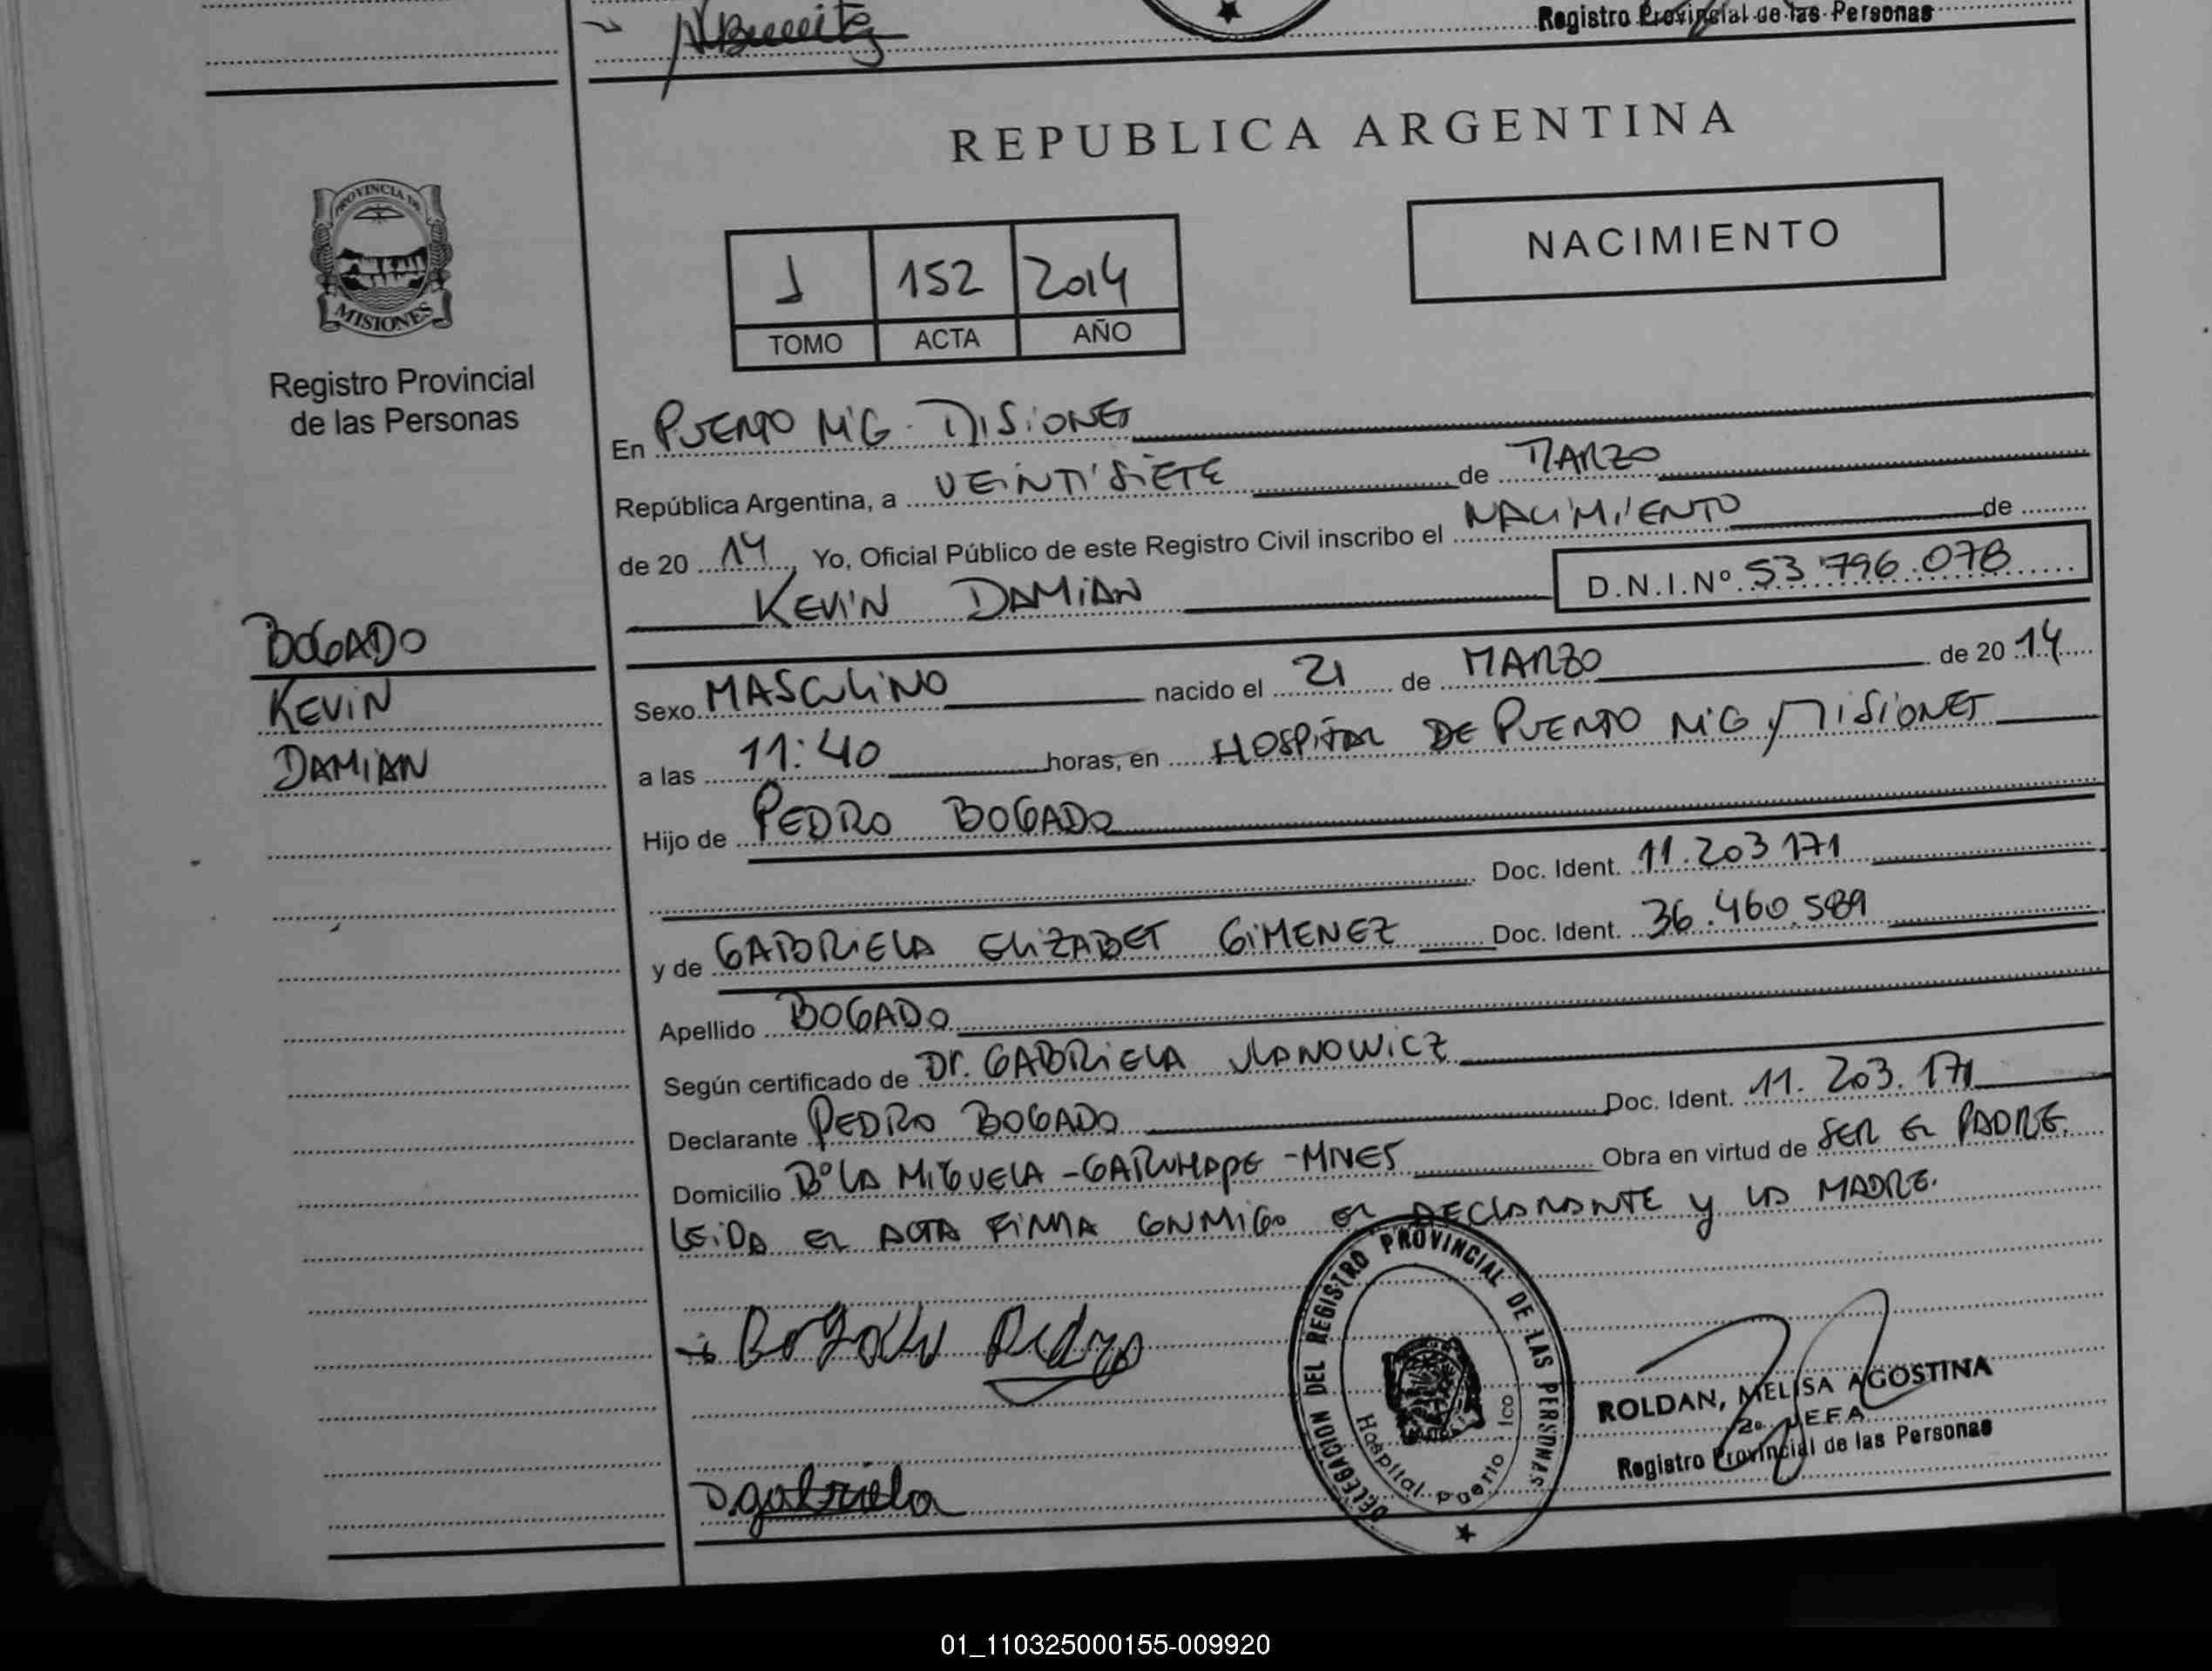 Registro Provincial de las Personas
REPUBLICA ARGENTINA
PROVINCIA DE
MISIONES
Registro Provincial
de las Personas
1 152 2014
TOMO ACTA AÑO
NACIMIENTO
En PUERTO RICO - MISIONES
República Argentina, a VEINTISIETE de MARZO
de 20 14, Yo, Oficial Público de este Registro Civil inscribo el NACIMIENTO de
KEVIN DAMIAN D.N.I.Nº 53.796.078
BOGADO
KEVIN
DAMIAN
Sexo MASCULINO nacido el 21 de MARZO de 20 14
a las 11:40 horas, en HOSPITAL DE PUERTO RICO, MISIONES
Hijo de PEDRO BOGADO
Doc. Ident. 11.203 171
y de GABRIELA ELIZABET GIMENEZ Doc. Ident. 36.460.589
Apellido BOGADO
Según certificado de Dr. GABRIELA ULANOWICZ
Declarante PEDRO BOGADO Doc. Ident. 11.203.171
Domicilio Bº LA MIGUELA - GARUHAPE - MNES Obra en virtud de SER EL PADRE.
LEIDA EL ACTA FIRMA CONMIGO EL DECLARANTE y LA MADRE.
Bogado Pedro
gabriela
DELEGACION DEL REGISTRO PROVINCIAL DE LAS PERSONAS
Hospital Puerto ico
ROLDAN, MELISA AGOSTINA
2a. JEFA
Registro Provincial de las Personas
01_110325000155-009920